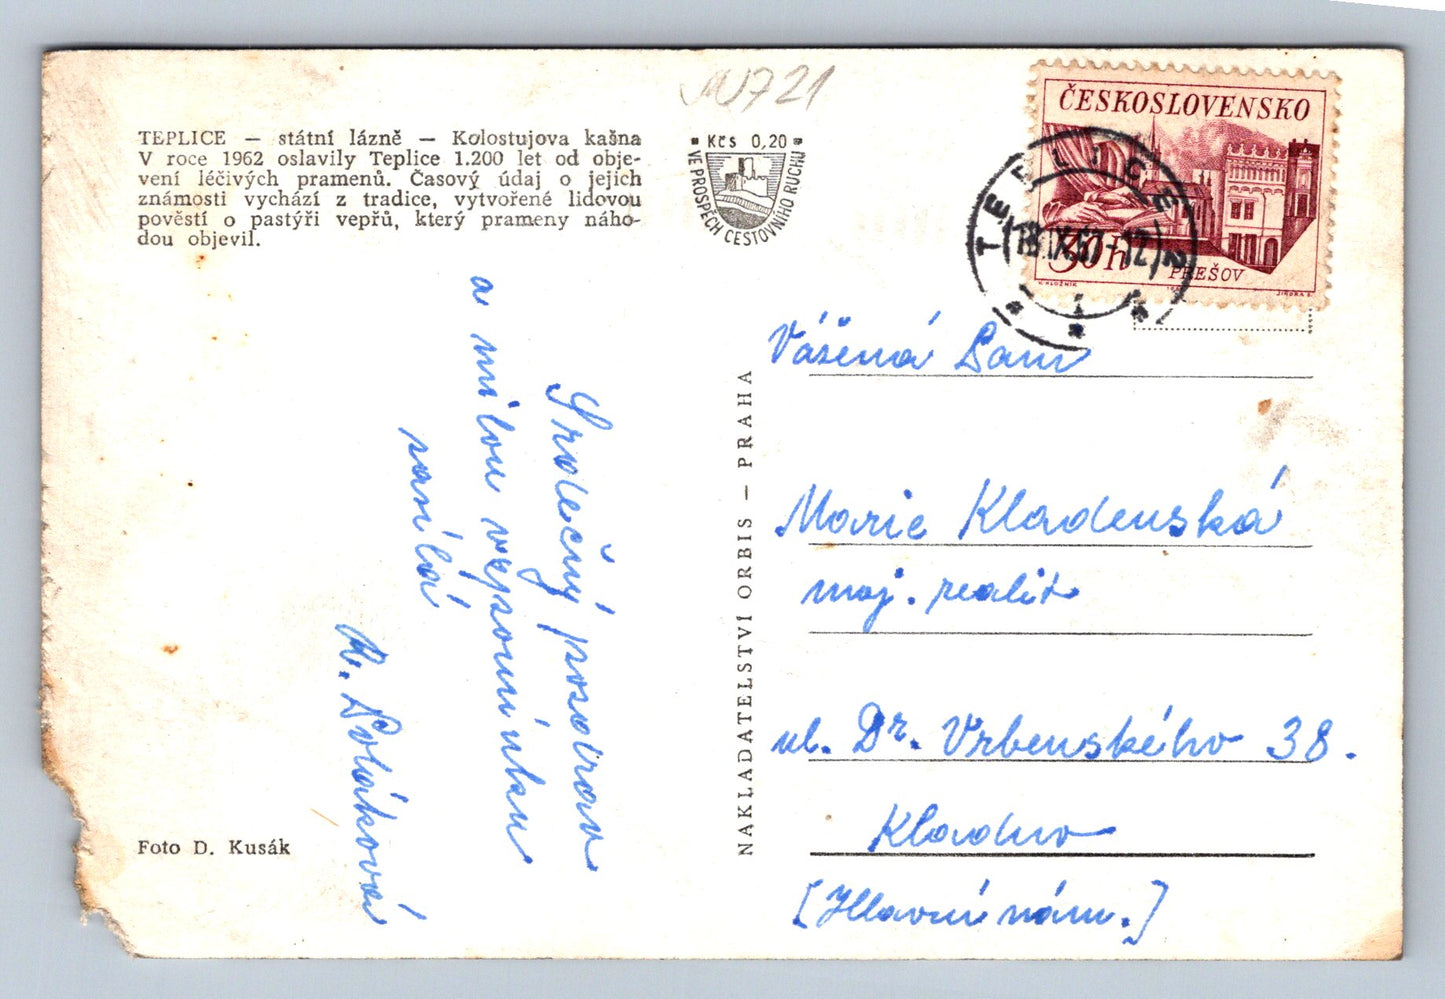 NU721
TEPLICE — státní lázně — Kolostujova kašna
V roce 1962 oslavily Teplice 1.200 let od obje-
vení léčivých pramenů. Časový údaj o jejich
známosti vychází z tradice, vytvořené lidovou
pověstí o pastýři vepřů, který prameny náho-
dou objevil.
Kčs 0,20
VE PROSPĚCH CESTOVNÍHO RUCHU
ČESKOSLOVENSKO
30h
PREŠOV
TEPLICE 2
18.IX.67-12
1
Srdečný pozdrav
a milou vzpomínku
posílá
Poláková
NAKLADATELSTVÍ ORBIS — PRAHA
Vážená Paní
Marie Kladenská
maj. realit
ul. Dr. Vrbenského 38.
Kladno
[Hlavní nám.]
Foto D. Kusák